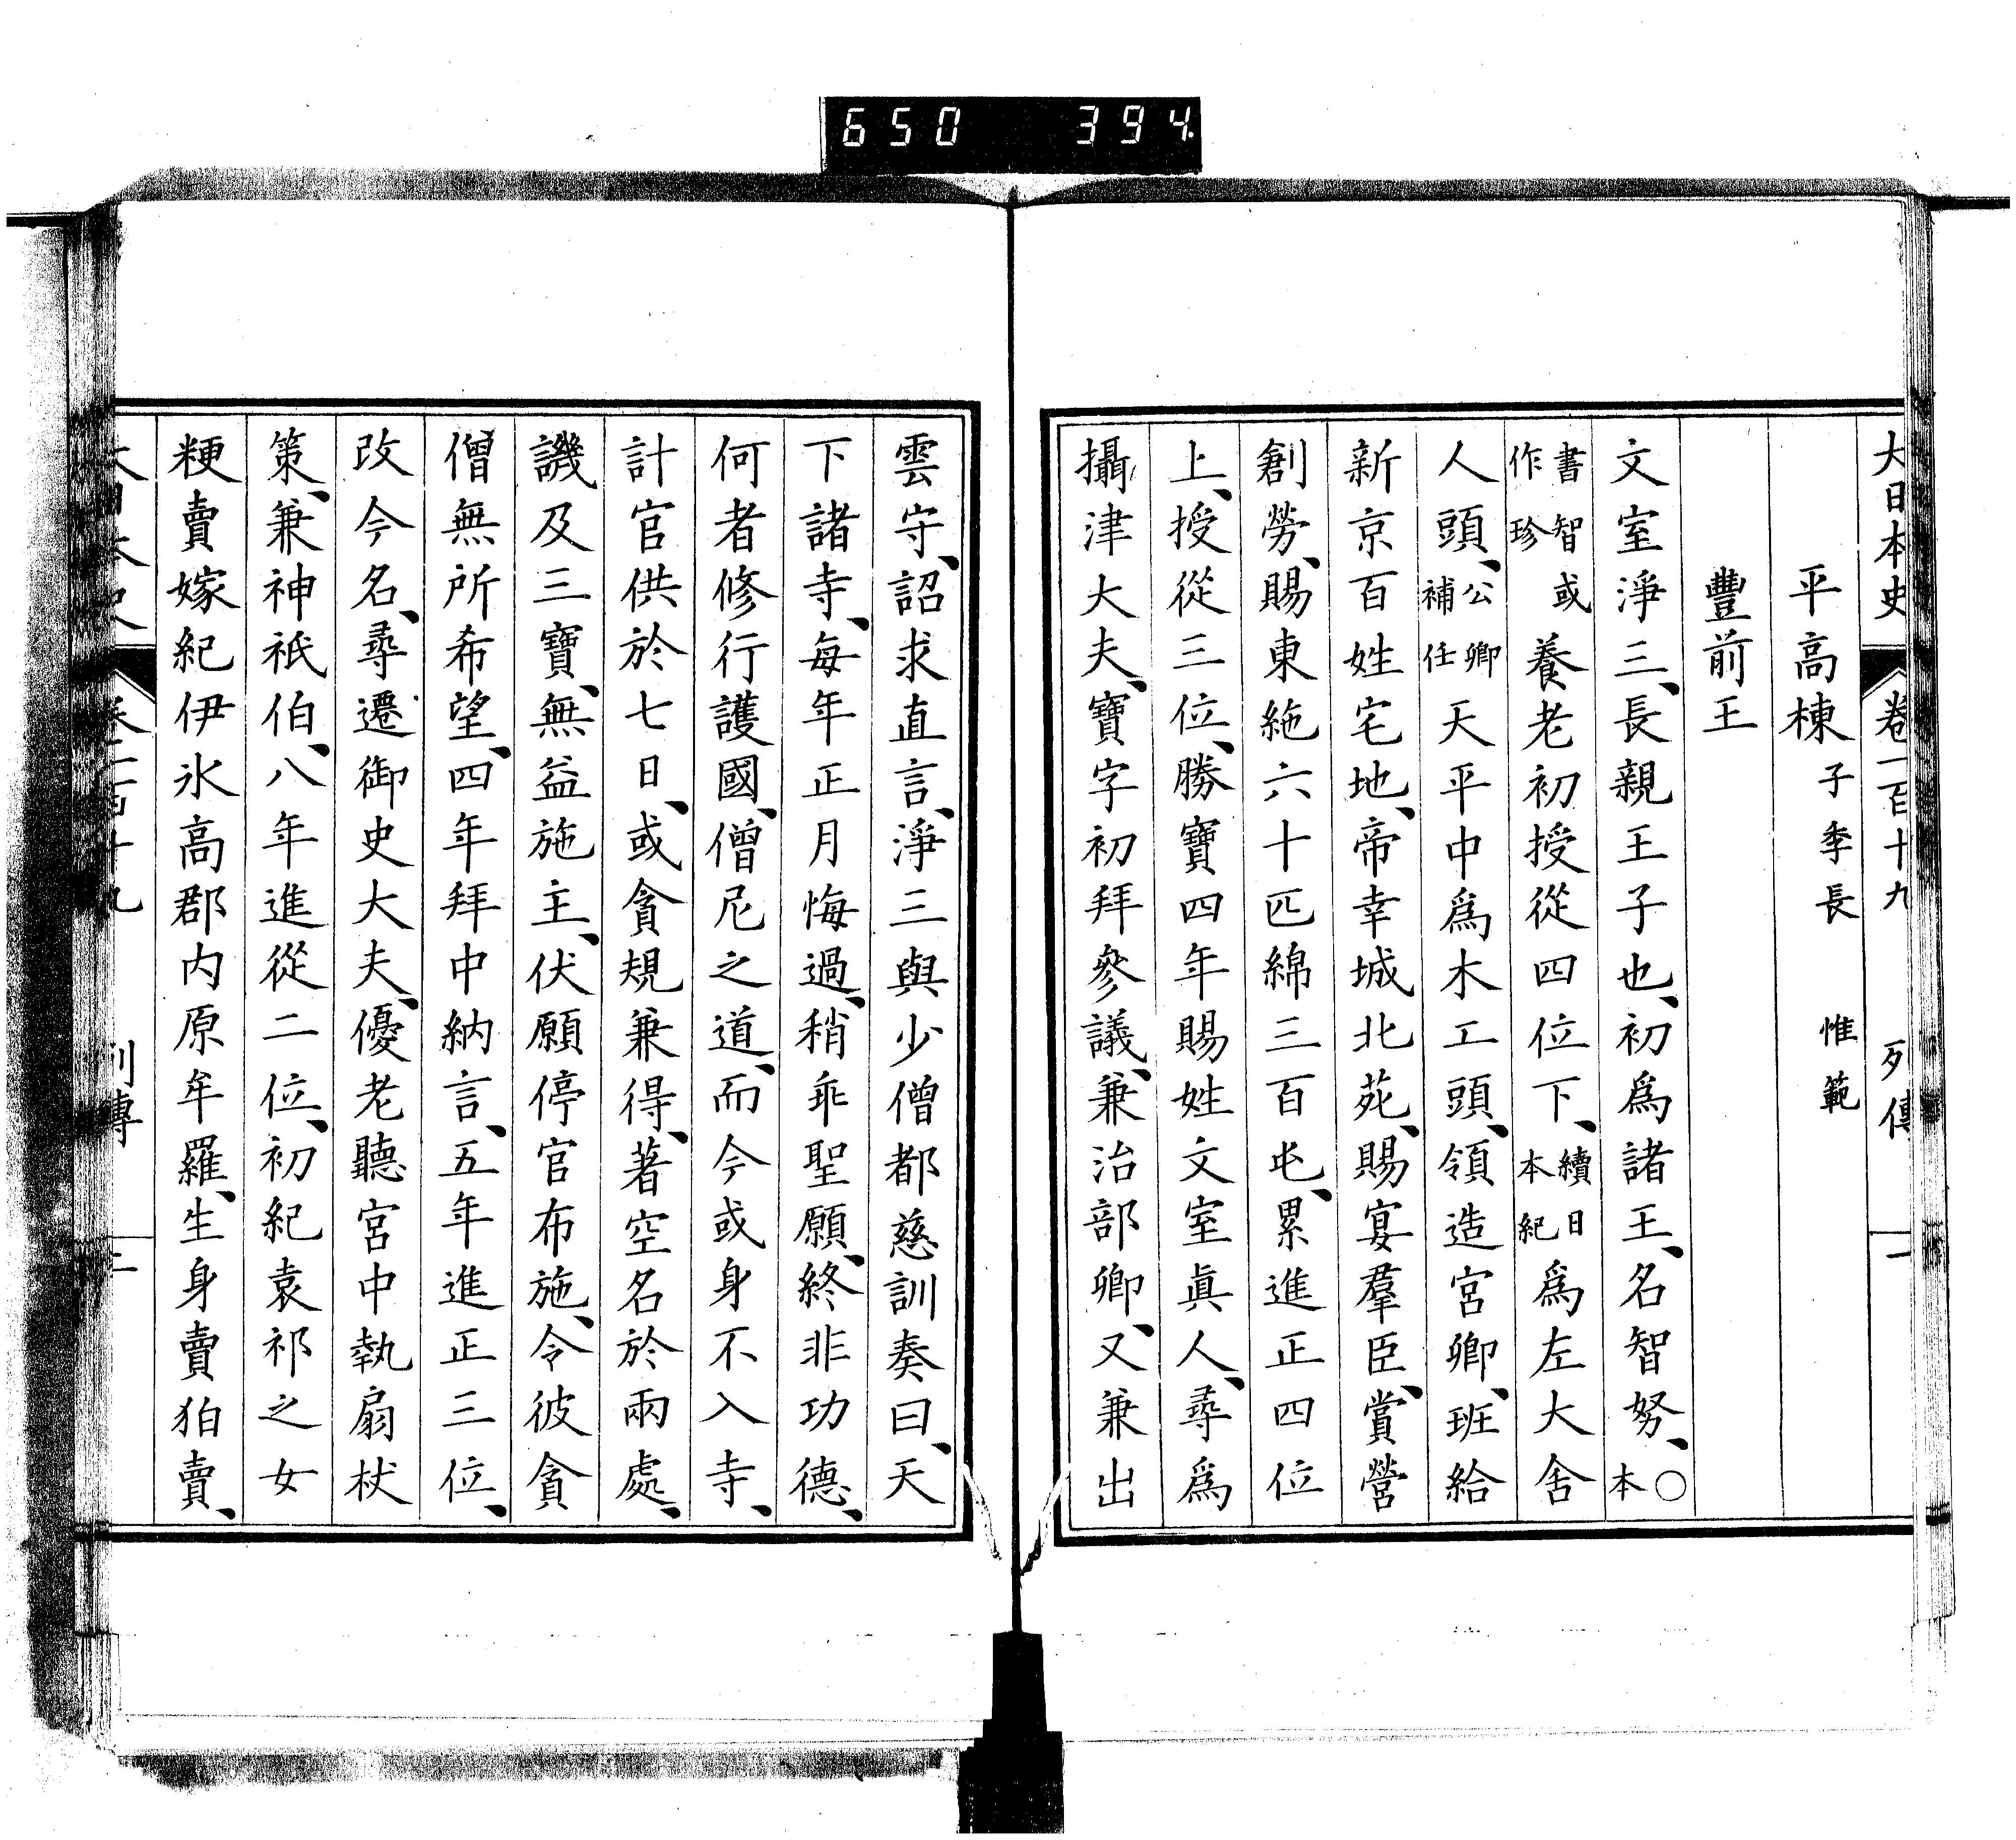 650 394
大日本史 卷一百十九 列傳 一
平高棟 子季長 惟範
豐前王
文室淨三、長親王子也、初爲諸王、名智努、○本
書智或作珍養老初授從四位下、續日本紀爲左大舍
人頭、公卿補任天平中爲木工頭、領造宮卿、班給
新京百姓宅地、帝幸城北苑、賜宴羣臣、賞營
創勞、賜東絁六十匹綿三百屯、累進正四位
上、授從三位、勝寶四年賜姓文室眞人、尋爲
攝津大夫、寶字初拜參議、兼治部卿、又兼出
雲守、詔求直言、淨三與少僧都慈訓奏曰、天
下諸寺、每年正月悔過、稍乖聖願、終非功德、
何者修行護國、僧尼之道、而今或身不入寺、
計官供於七日、或貪規兼得、著空名於兩處、
譏及三寶、無益施主、伏願停官布施、令彼貪
僧無所希望、四年拜中納言、五年進正三位、
改今名、尋遷御史大夫、優老聽宮中執扇杖
策、兼神祇伯、八年進從二位、初紀袁祁之女
粳賣嫁紀伊氷高郡內原牟羅、生身賣狛賣、
大日本史 卷一百十九 列傳 二